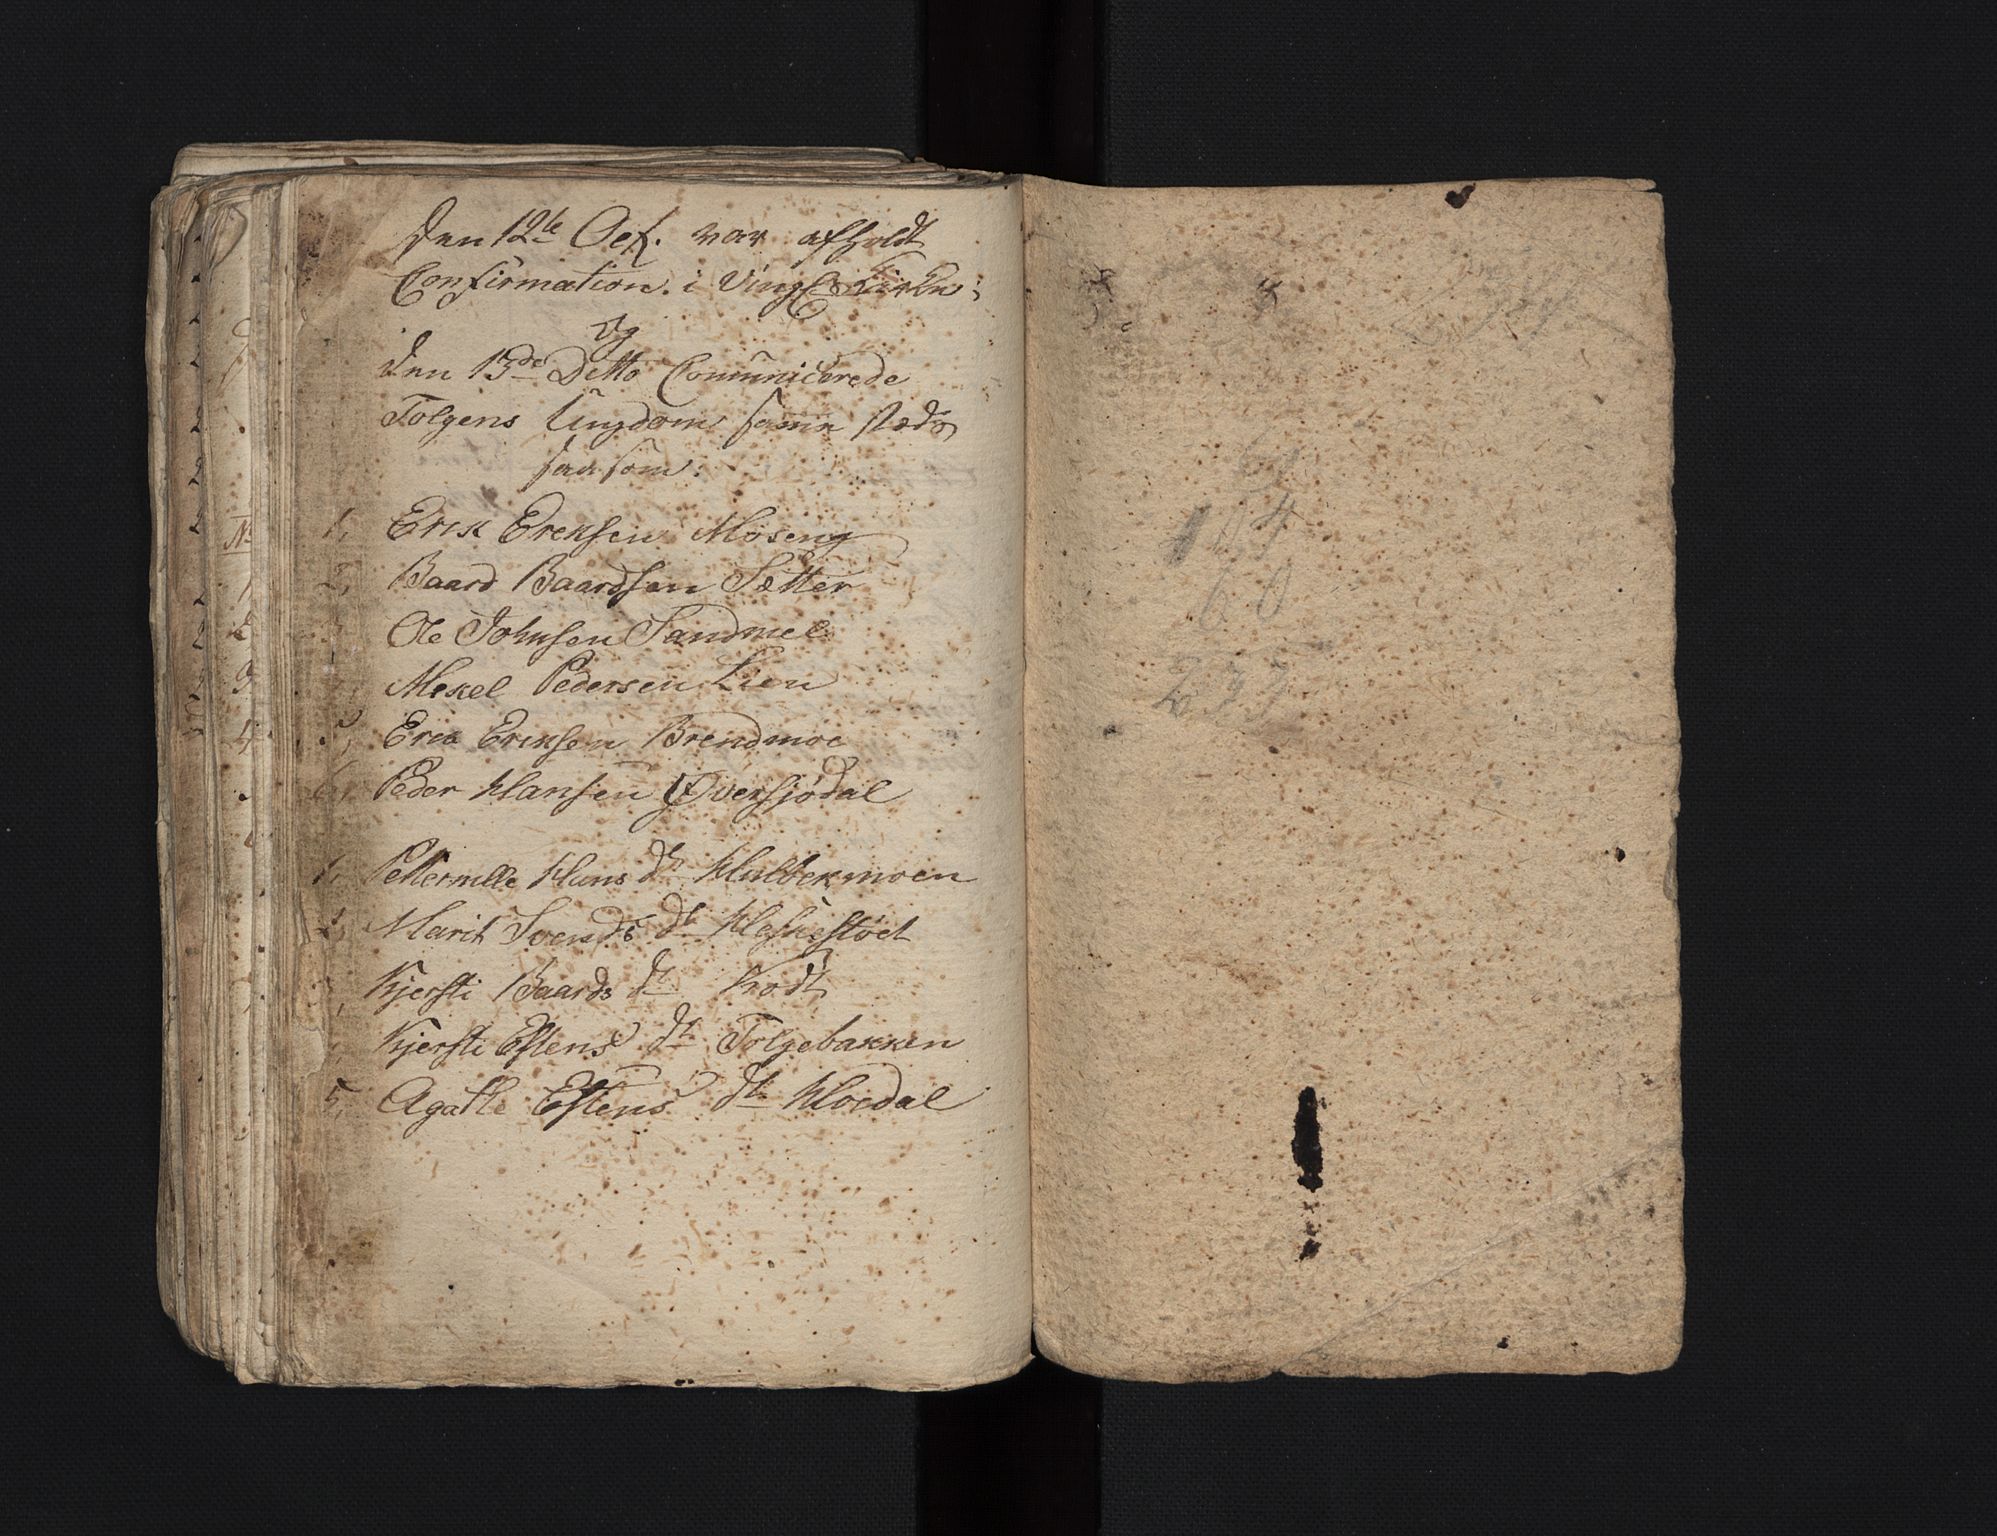 Den 12te Oct. var afholdt
Confirmation i Vingel Kirke;
og
den 13de Ditto Comunicerede
Tolgens Ungdom samme stæds
saasom:
1, Erik Ereksen Moseng
2, Baard Baardsen Sætter
Ole Johnsen Sandmel
Mekel Pedersen Lien
5, Erik Eriksen Brendmoe
6, Peder Hansen Øversjødal
1, Petternille Hans dt Hulbekmoen
2, Marit Svends dt
Kjersti Baards dt Kodt
Kjersti Estens dt Tolgebakken
5, Agathe Estens dt Hoedal
61
154
60
233
N
1
2
3
4